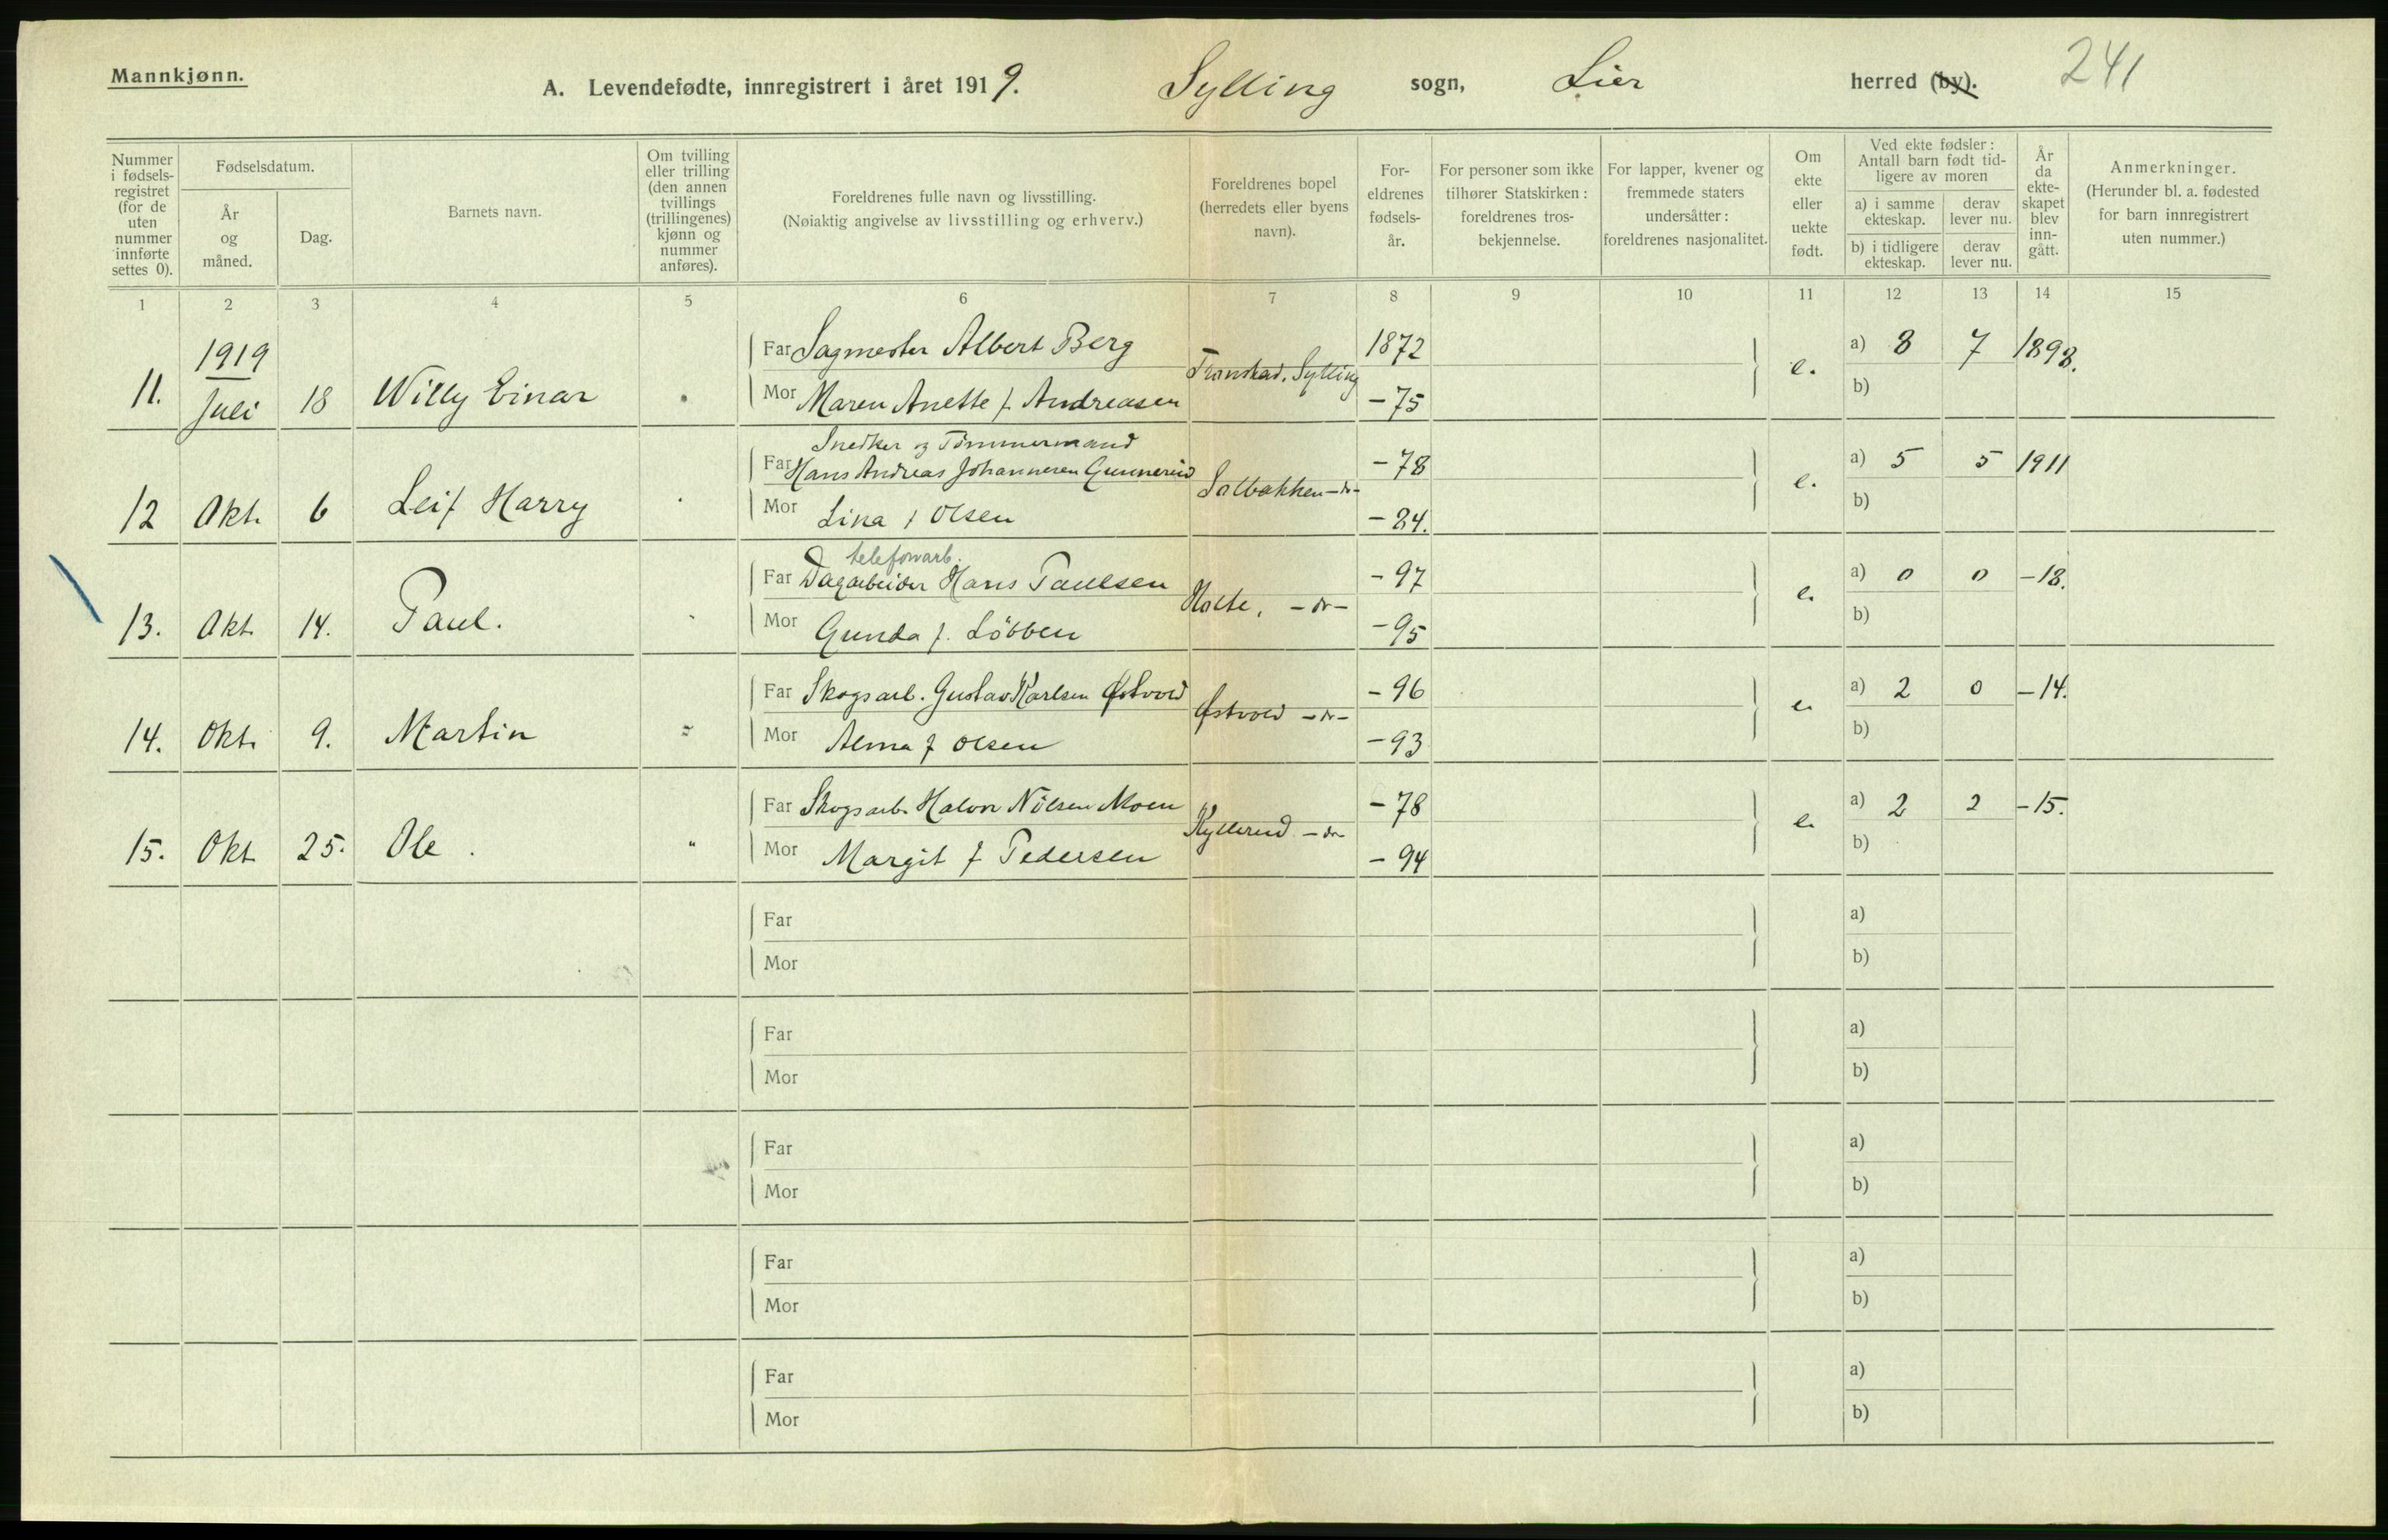 Mannkjønn.
A. Levendefødte, innregistrert i året 1919. Sylling sogn, Lier herred (by). 241
Nummer i fødsels-registret (for de uten nummer innførte settes 0).
Fødselsdatum.
År og måned.
Dag.
Barnets navn.
Om tvilling eller trilling (den annen tvillings (trillingenes) kjønn og nummer anføres).
Foreldrenes fulle navn og livsstilling.
(Nøiaktig angivelse av livsstilling og erhverv.)
Foreldrenes bopel (herredets eller byens navn).
For-eldrenes fødsels-år.
For personer som ikke tilhører Statskirken: foreldrenes tros-bekjennelse.
For lapper, kvener og fremmede staters undersåtter: foreldrenes nasjonalitet.
Om ekte eller uekte født.
Ved ekte fødsler: Antall barn født tid-ligere av moren
a) i samme ekteskap.
derav lever nu.
b) i tidligere ekteskap.
derav lever nu.
År da ekte-skapet blev inn-gått.
Anmerkninger.
(Herunder bl. a. fødested for barn innregistrert uten nummer.)
1 2 3 4 5 6 7 8 9 10 11 12 13 14 15
1919
Far Sagmester Albert Berg 1872 a) 8 7 1898.
11. Juli 18 Willy Einar Transkad. Sylling e.
Mor Maren Anette f. Andreasen -75 b)
Snedker og Tömmermand
Far Hans Andreas Johannesen Gunnerud -78 a) 5 5 1911
12 Okt. 6 Leif Harry Solbakken -do- e.
Mor Lina f Olsen -84. b)
telefonarb.
Far Dagarbeider Hans Paulsen -97 a) 0 0 -18.
13. Okt. 14. Paul. Holte, -do- e.
Mor Gunda f. Löbben -95 b)
Far Skogsarb. Gustav Karlsen Østvold -96 a) 2 0 -14.
14. Okt. 9. Martin Østvold -do- e.
Mor Alma f Olsen -93 b)
Far Skogsarb. Halvor Nilsen Moen -78 a) 2 2 -15.
15. Okt 25. Ole. " Kyllerud -do- e.
Mor Margit f Pedersen -94 b)
Far a)
Mor b)
Far a)
Mor b)
Far a)
Mor b)
Far a)
Mor b)
Far a)
Mor b)